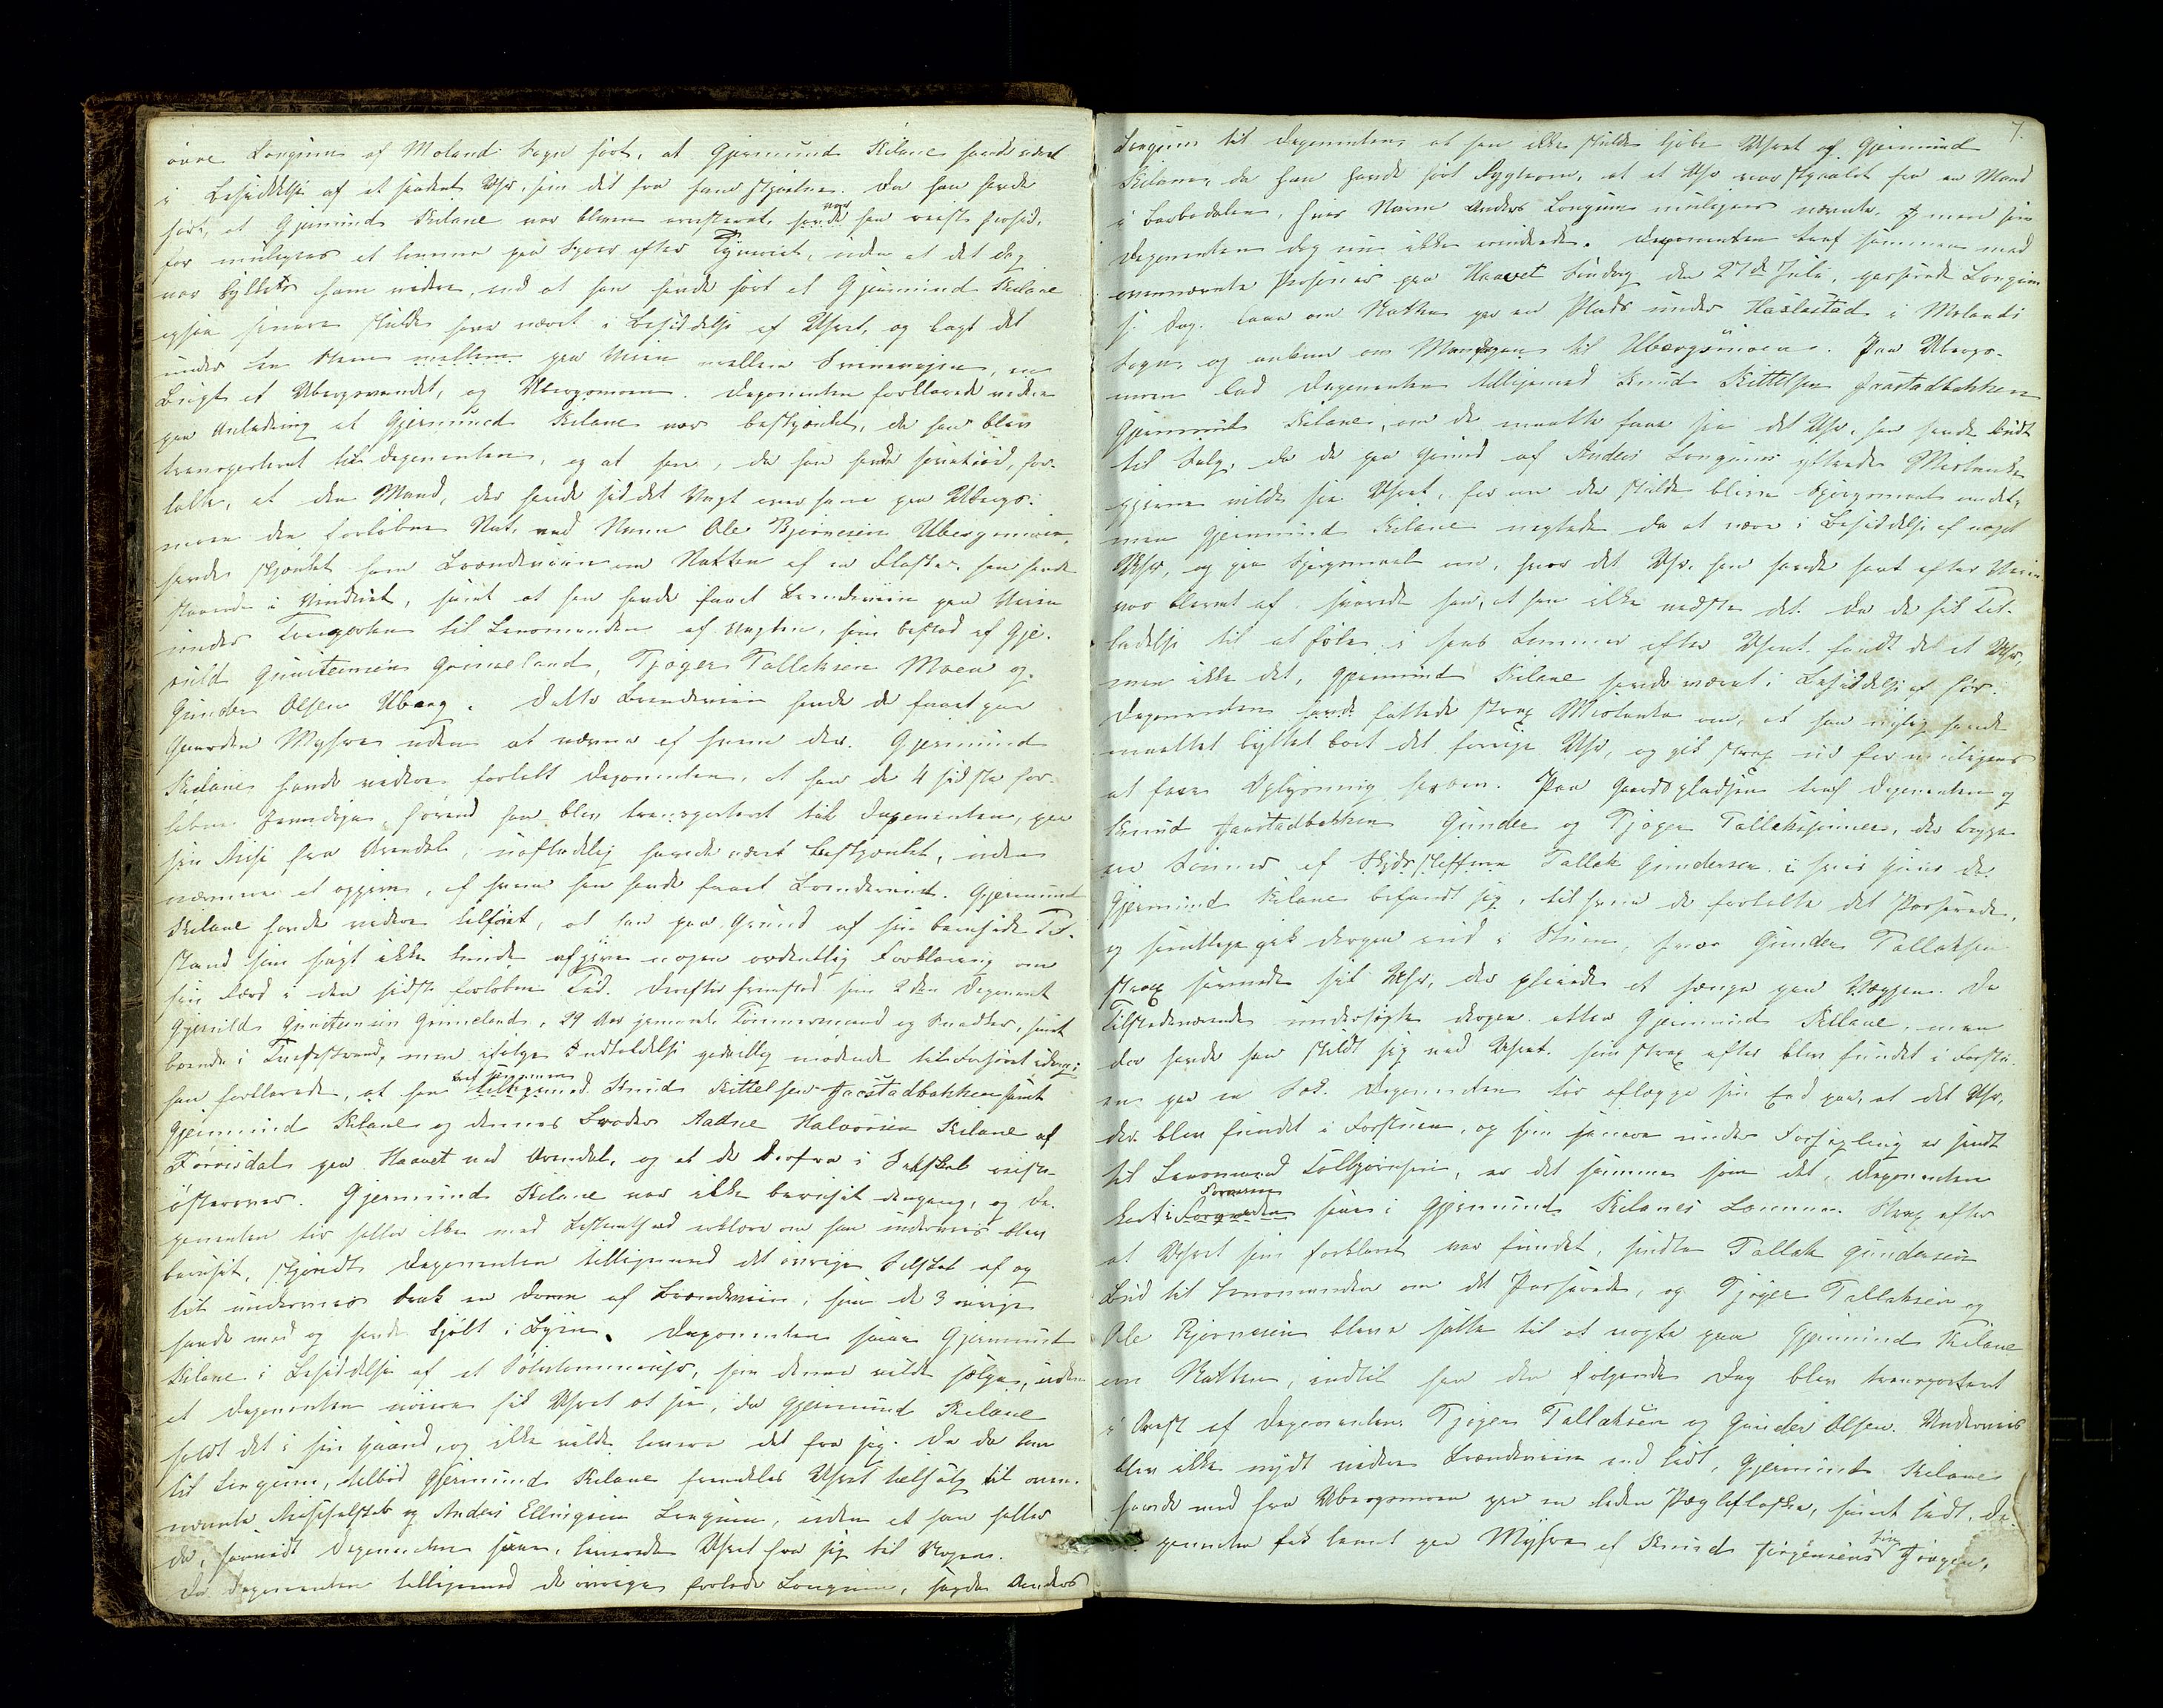 övre Longum af Molands Sogn hørt, at Gjermund Kilane havde været
i Besiddelse af et saadant Uhr, som det fra ham stjaalne. Da han havde
hørt, at Gjermund Kilane var bleven arresteret, havde han reist herhid,
for muligens at komme paa Spor efter Tyveriet, uden at det dog
var lykkets ham videre, end at han havde hørt at Gjermund Kilane
ogsaa senere skulde have været i Besiddelse af Uhret, og lagt det
under en Steen mellem paa Veien mellem en
Bugt af Ubergsvandet, og Ubergsmoen. Deponenten forklarede videre
paa Anledning at Gjermund Kilane var beskjænket, da han blev
transporteret til Deponenten, og at han, da han havde for-
talte, at den Mand, der havde siddet Vagt over ham paa Ubergs-
moen den forløbne Nat, ved Navn Ole Bjørnsen Ubergsmoen,
havde skjænket ham Brændeviin om Natten af en Flaske, han havde
staaende i Vinduet, samt at han havde faaet Brændeviin paa Veien
under Transporten til Lensmanden af Vagten, som bestod af Gje-
ruld Gunstensen Grimeland, Tjøger Tallaksen Moen og
Gunder Olsen Uberg. Dette Brændeviin havde de faaet paa
Gaarden Myhre uden at nævne af hvem der. Gjermund
Kilane havde videre fortalt Deponenten, at han de 4 sidste for-
løbne Dage, førend han blev transporteret til Deponenten, paa
sin Reise fra Arendal, uafladelig havde været beskjænket, uden
nærmere at opgive, af hvem han havde faaet Brændeviinet. Gjermund
Kilane havde videre tilføiet, at han paa Grund af sin berusede Til-
stand som sagt ikke kunde afgive nogen ordentlig Forklaring om
sin Færd i den sidst forløbne Tid. Derefter fremstod som 2den Deponent
Gjeruld Gunstensen Grimeland, 29 Aar gammel Tømmermand og Snedker, samt
boende i men ifølge Indkaldelse godvillig mødende til Forhøret idag;
han forklarede, at han traf sammen tilligemed Knud Kittelsen Jaastadbakken samt
Gjermund Kilane og dennes Broder Aadne Halvorsen Kilane af
Førrisdal paa Haavet ved Arendal, og at de derfra i Selskab reiste
østerover. Gjermund Kilane var ikke beruset dengang, og De-
ponenten tør heller ikke med Bestemthed erklære om han underveis blev
beruset, skjøndt Deponenten tilligemed det øvrige Selskab af og
til underveis drak en Dram af Brændeviin, som de 3 øvrige
havde med og havde kjøbt i Byen. Deponenten saae Gjermund
Kilane i Besiddelse af et Sølvlommeuhr, som denne vilde sælge, uden
at Deponenten nøiere fik Uhret at see, da Gjermund Kilane
holdt det i sin Haand, og ikke vilde levere det fra sig. Da de kom
til Longum, tilbød Gjermund Kilane fremdeles Uhret tilsalg til oven-
nævnte Reiseselskab og Anders Ellingsen Longum, uden at han heller
da, saavidt Deponenten saae, leverede Uhret fra sig til Nogen.
Da Deponenten tilligemed de øvrige forlode Longum, sagde Anders
7.
Longum til Deponenten at han ikke skulde kjøbe Uhret af Gjermund
Kilane, da han havde hørt Rygterne, at et Uhr var stjaalet fra en Mand
i Barbodalen, hvis Navn Anders Longum muligens nævnte, men som
Deponenten dog nu ikke erindrede. Deponenten traf sammen med
ovennævnte Personer paa Haavet Søndag den 27de Juli, passerede Longum
s. Dag, laae om Natten paa en Plads under Haslestad i Molands
Sogn og ankom om Mandagen til Ubergsmoen. Paa Ubergs-
moen bad Deponenten tilligemed Knud Kittelsen Jaastadbakken
Gjermund Kilane, om de maatte faae see det Uhr, han havde budt
til Salg, da de paa Grund af Anders Longums yttrede Mistanke
gjerne vilde see Uhret, for om der skulde blive Spørgsmaal om det,
men Gjermund Kilane negtede da at være i Besiddelse af noget
Uhr, og paa Spørgsmaal om, hvor det Uhr, han havde havt efter Veien
var blevet af, svarede han, at han ikke vidste det. Da de fik Til-
ladelse til at føle i hans Lommer efter Uhret fandt de et Uhr,
men ikke det, Gjermund Kilane havde været i Besiddelse af før.
Deponenten havde fattede strax Mistanke om, at han nylig havde
byttet bort det forrige Uhr, og gik strax ud for muligens
at faae Oplysning herom. Paa Gaardspladsen traf Deponenten og
Knud Jaastadbakken Gunder og Tjøger Tallaksønner, der begge
ere Sønner af Skydsskafferen Tallak Gundersen i hvis Huus da
Gjermund Kilane befandt sig, til hvem de fortalte det Passerede,
og samtlige gik derpaa ind i Stuen, hvor Gunder Tallaksen
strax savnede sit Uhr, der pleiede at hænge paa Væggen. De
Tilstedeværende undersøgte derpaa atter Gjermund Kilane, men
da havde han skildt sig ved Uhret, som strax efter blev fundet i Forstu-
en paa en Deponenten tør aflægge sin Eed paa, at det Uhr,
der blev fundet i Forstuen, og som senere under Forsegling er sendt
til Lensmand Tolbjørnsen, er det samme som det, Deponenten
kort i Forveien saae i Gjermund Kilanes Lomme. Strax efter
at Uhret som forklaret var fundet, sendte Tallak Gundersen
Bud til Lensmanden om det Passerede, og Tjøger Tallaksen og
Ole Bjørnesen bleve satte til at vogte paa Gjermund Kilane
om Natten, indtil han den følgende Dag blev transporteret
i Arest af Deponenten, Tjøger Tallaksen og Gunder Olsen. Underveis
blev ikke nydt videre Brændeviin end lidt, Gjermund Kilane
havde med fra Ubergsmoen paa en liden Pægleflaske, samt lidt, De-
ponenten fik laant paa Myhre af Knud Jørgensens Søn Jørgen,